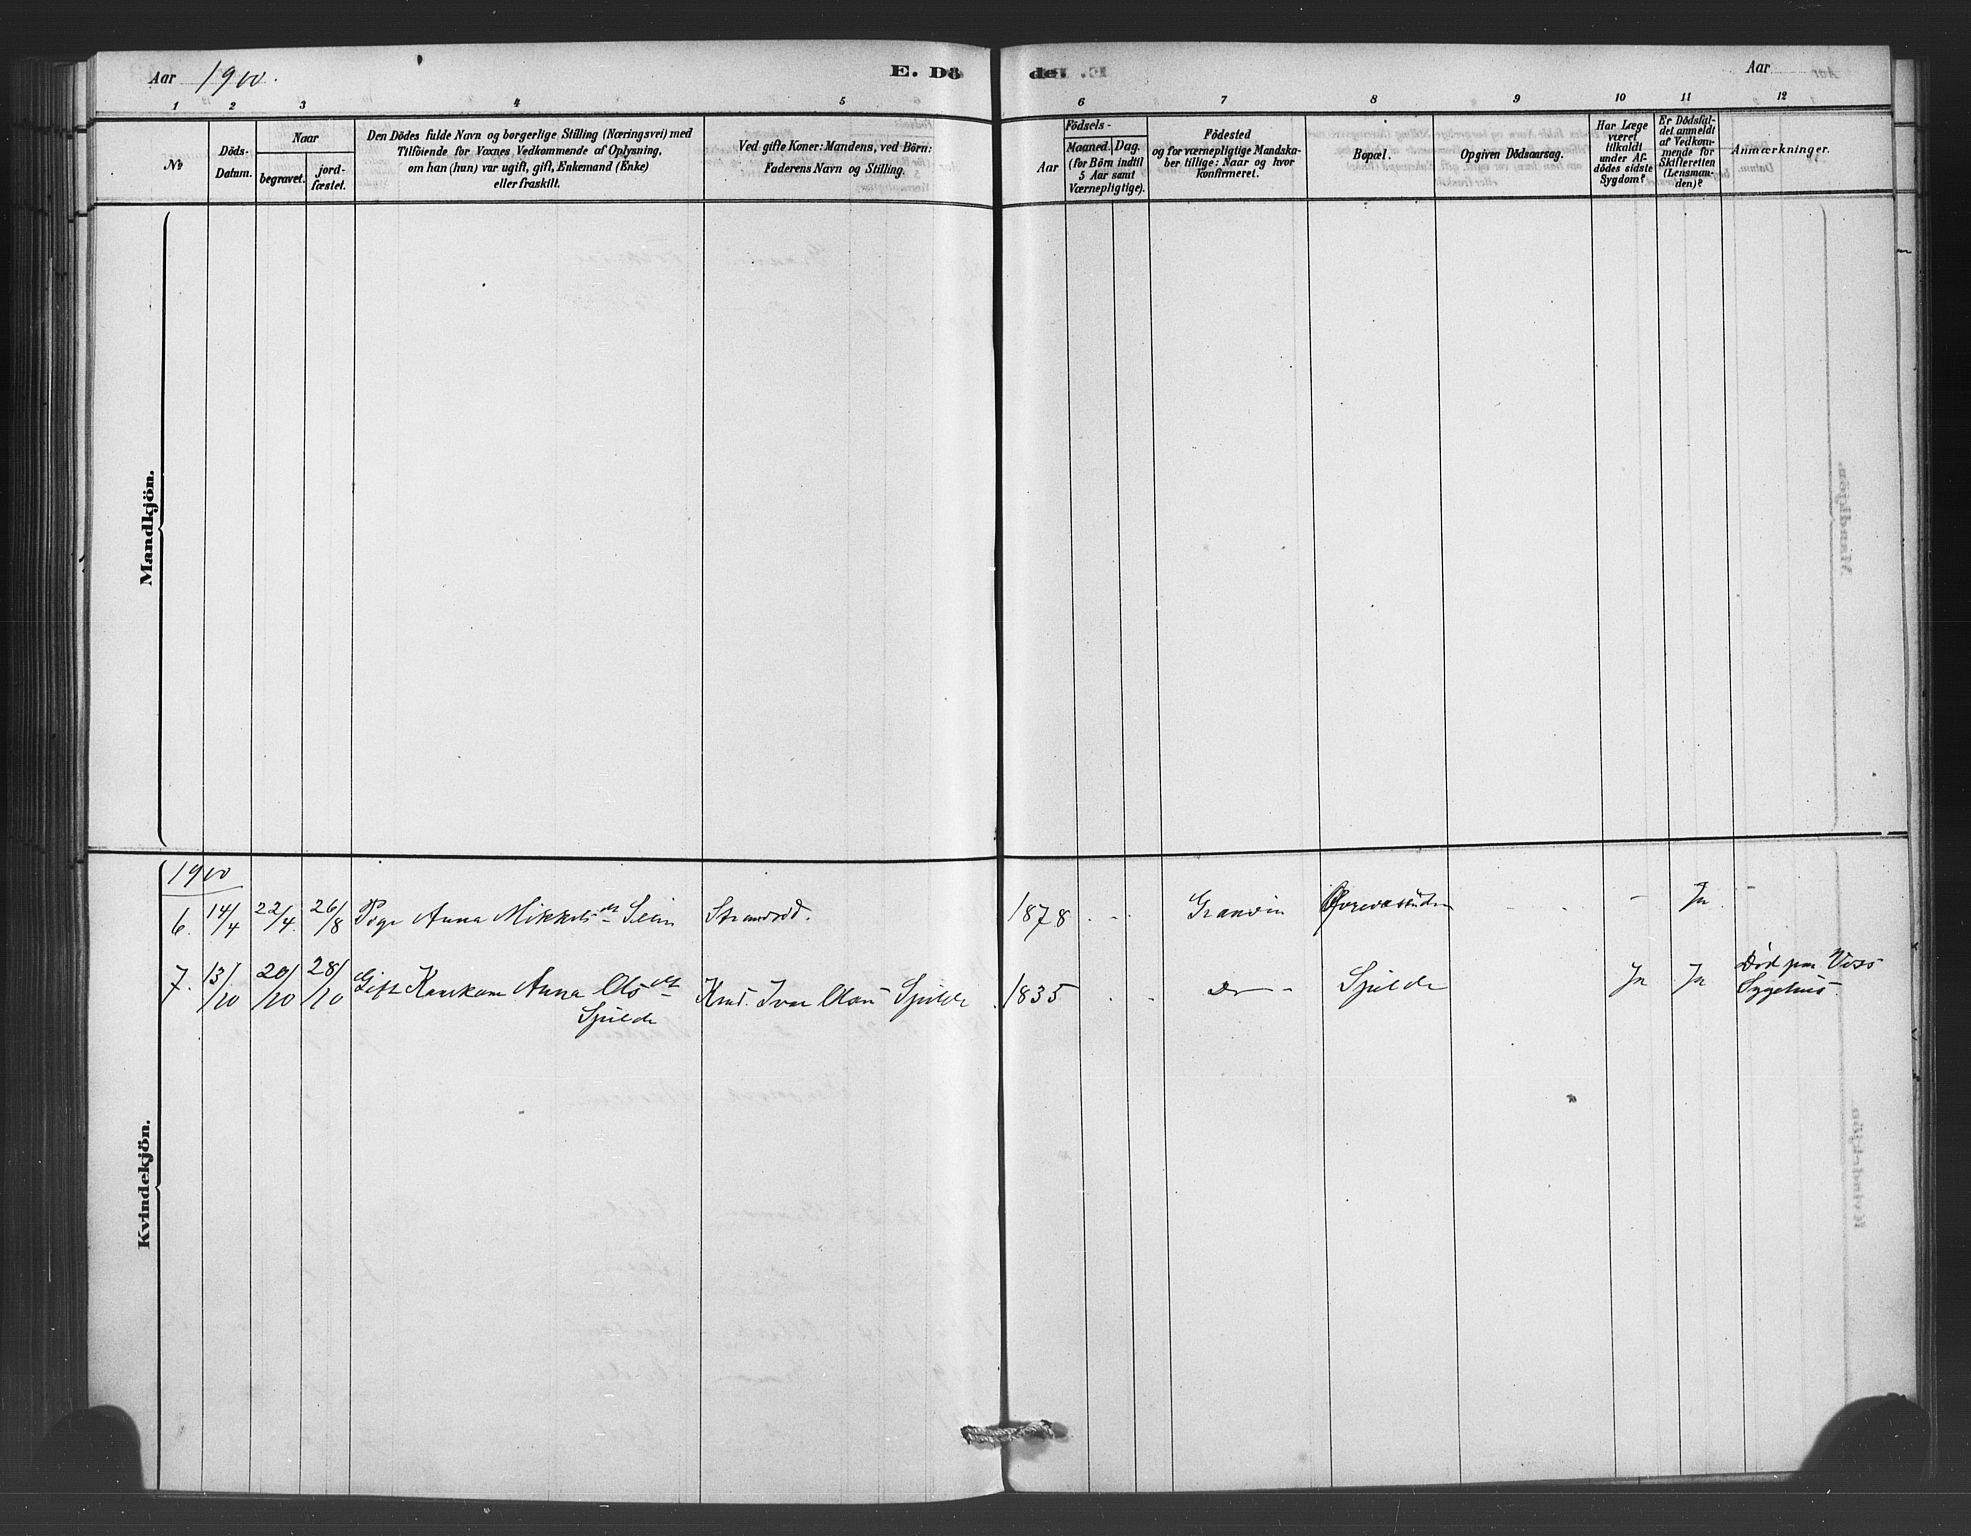 Aar 1900.
E. Dö de
Aar
1 2 3 4 5 6 7 8 9 10 11 12
№
Döds-
Datum.
Naar
begravet.
jord-
fæstet.
Den Dödes fulde Navn og borgerlige Stilling (Næringsvei) med
Tilföiende for Voxnes Vedkommende af Oplysning,
om han (hun) var ugift, gift, Enkemand (Enke)
eller fraskilt.
Ved gifte Koner: Mandens, ved Börn:
Faderens Navn og Stilling.
Födsels-
Aar
Maaned. Dag.
(for Börn indtil
5 Aar samt
Værnepligtige).
Födested
og for værnepligtige Mandska-
ber tillige: Naar og hvor
konfirmeret.
Bopæl.
Opgiven Dödsaarsag.
Har Læge
været
tilkaldt
under Af-
dödes sidste
Sygdom?
Er Dödsfal-
det anmeldt
af Vedkom-
mende for
Skifteretten
(Lensman-
den)?
Anmærkninger.
Mandkjön.
Kvindekjön.
1900
6. 14/4 22/4. 26/8 Pige Anna Mikkelsdt Seim Strandsid. 1878 Granvin Øvrevasenden - Ja -
7. 13/10 20/10 28/10 Gift Kaarkone Anna Olsdt Kmd. Ivar Olsen Spilde 1835 Do - Spilde Ja Ja Død paa Voss
Spilde Sygehus.